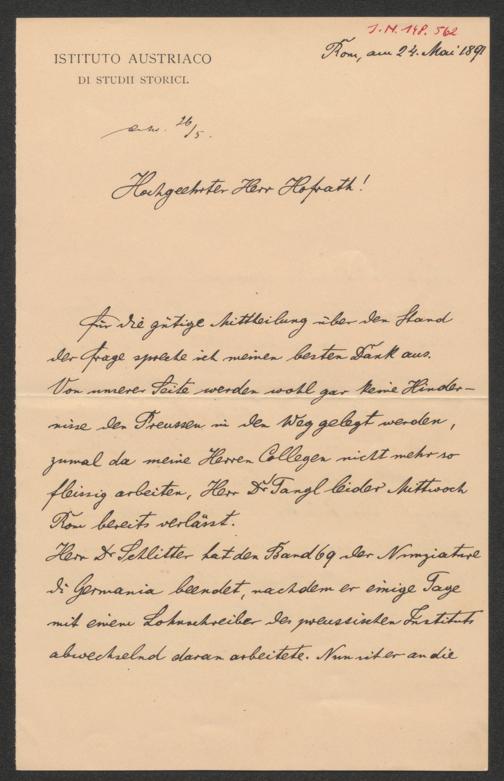 J. N. 148.562
Rom, am 24. Mai 1891
ISTITUTO AUSTRIACO
DI STUDII STORICI.
26/5.
Hochgeehrter Herr Hofrath!
für die gütige Mittheilung über den Stand
der Frage spreche ich meinen besten Dank aus.
Von unserer Seite werden wohl gar keine Hinder-
nisse den Preussen in den Weg gelegt werden,
zumal da meine Herren Collegen nicht mehr so
fleissig arbeiten, Herr Dr Tangl leider Mittwoch
Rom bereits verlässt.
Herr Dr Schlitter hat den Band 69 der Nunziature
di Germania beendet, nachdem er einige Tage
mit einem Lohnschreiber des preussischen Instituts
abwechselnd daran arbeitete. Nun ist er an die